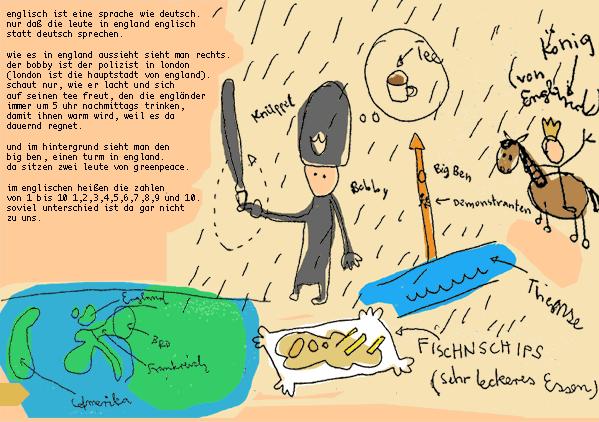 englisch ist eine sprache wie deutsch.
nur daß die leute in england englisch
statt deutsch sprechen.
wie es in england aussieht sieht man rechts.
der bobby ist der polizist in london
(london ist die hauptstadt von england).
schaut nur, wie er lacht und sich
auf seinen tee freut, den die engländer
immer um 5 uhr nachmittags trinken,
damit ihnen warm wird, weil es da
dauernd regnet.
und im hintergrund sieht man den
big ben, einen turm in england.
da sitzen zwei leute von greenpeace.
im englischen heißen die zahlen
von 1 bis 10 1,2,3,4,5,6,7,8,9 und 10.
soviel unterschied ist da gar nicht
zu uns.
Tee
König
(von
England)
Knüppel
Bobby
Big Ben
Demonstranten
Themse
England
BRD
Frankreich
Amerika
FISCHNSCHIPS
(sehr leckeres Essen)